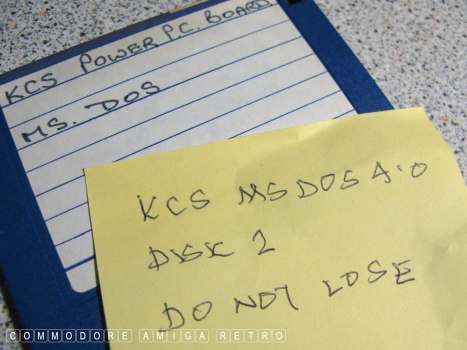 KCS POWER PC. BOARD
MS. DOS
KCS MSDOS 4.0
DISK 2
DO NOT LOSE
COMMODORE AMIGA RETRO